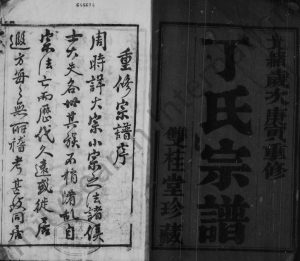 重修
丁氏宗譜
雙桂堂珍藏
重修宗譜序
周時詳大宗小宗之法諸侯
士大夫各世其族不稍淆亂自
宗法亡而歷代人遠或徙居
遐方每每無所稽考甚致同居